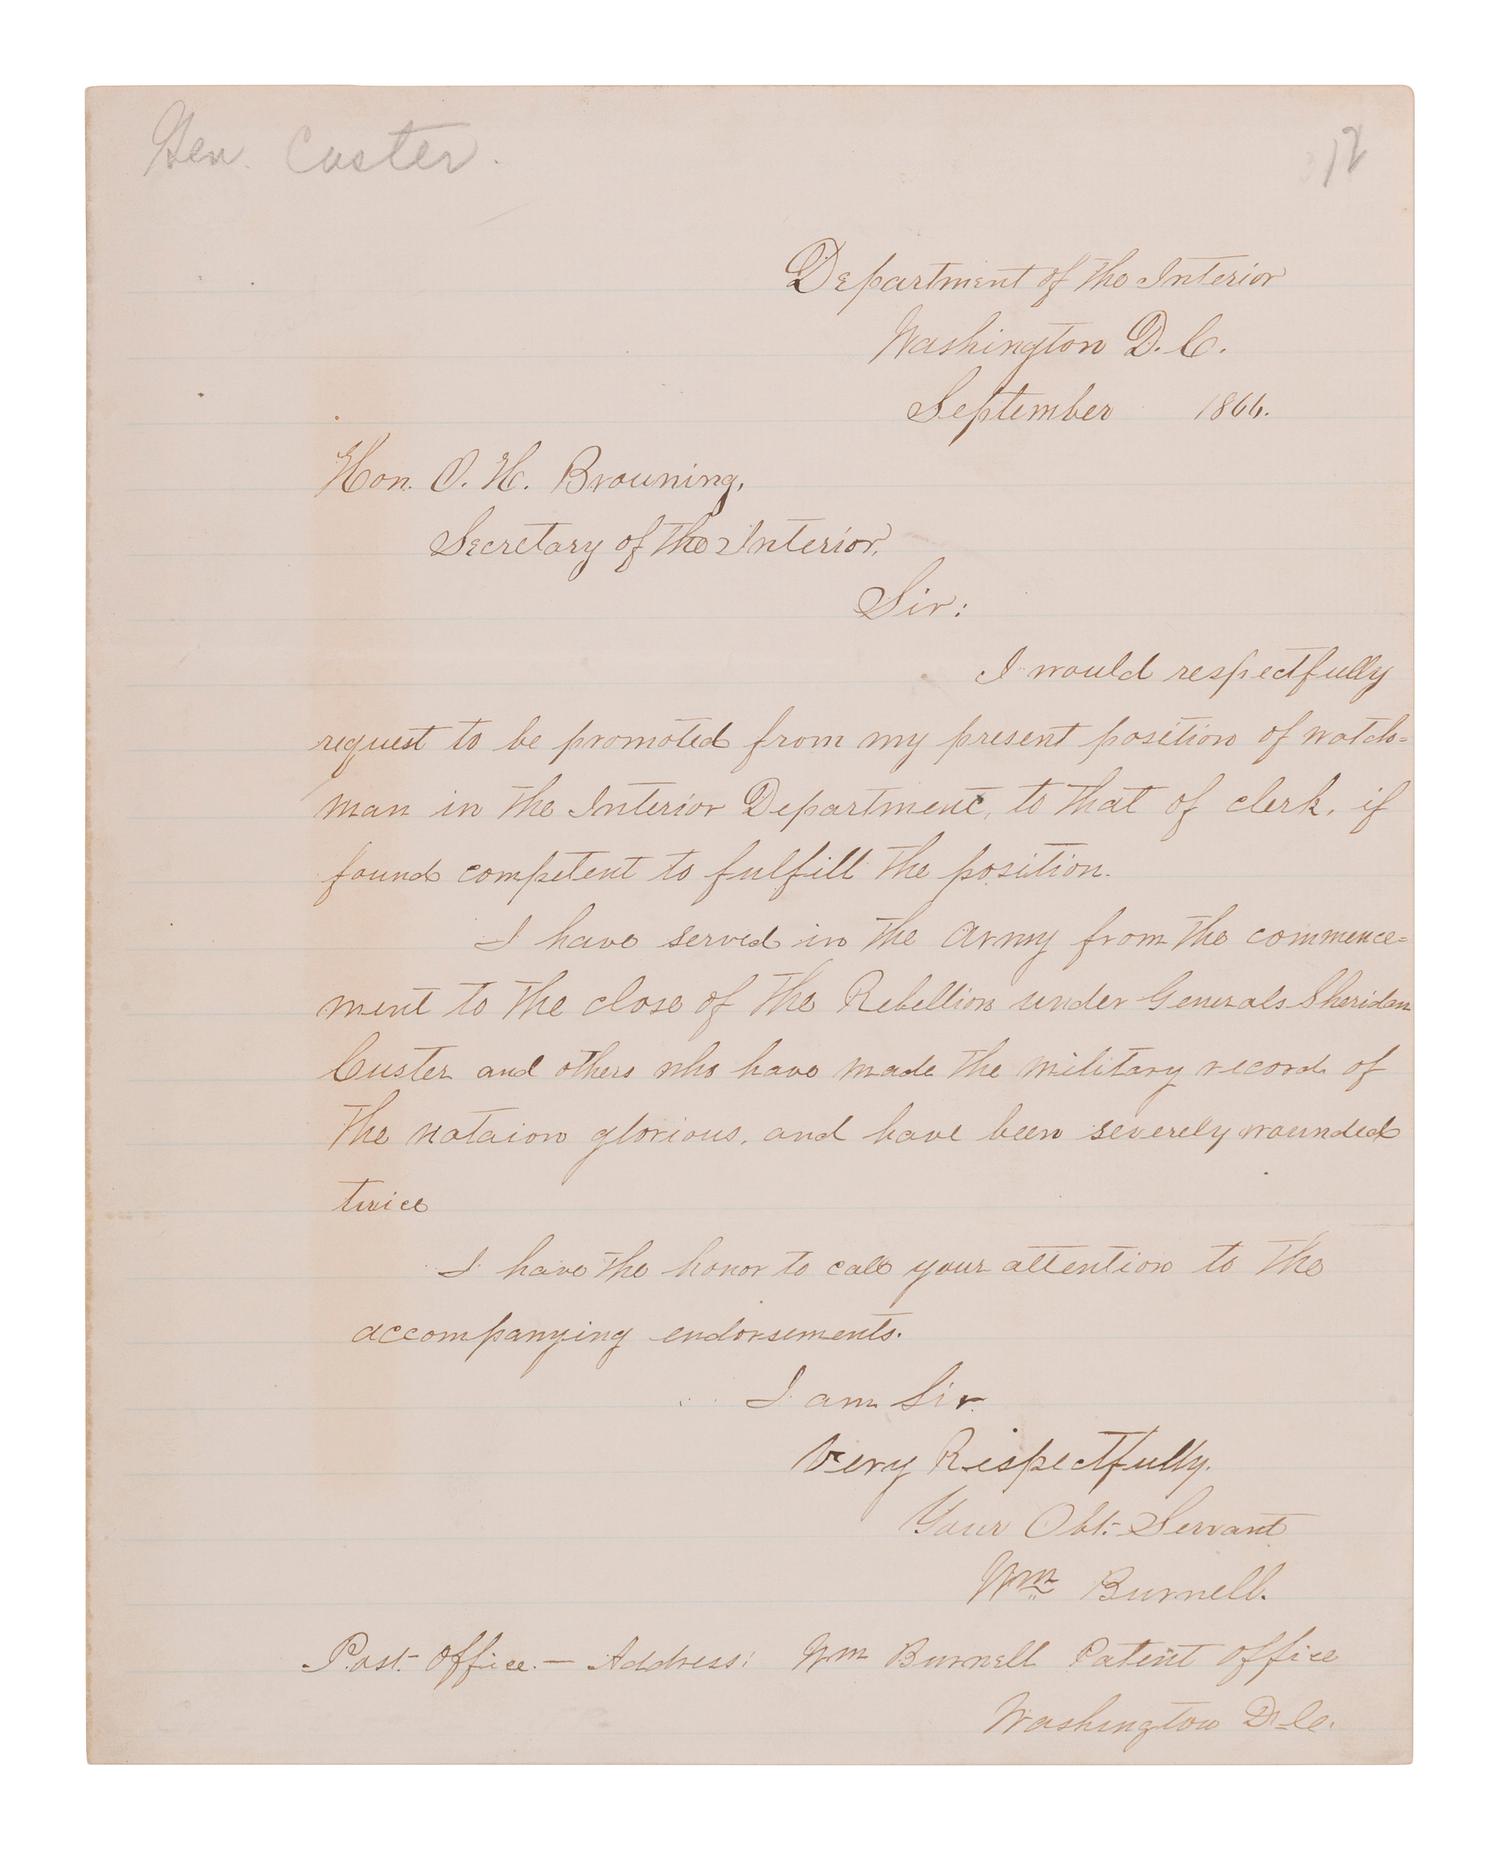 Gen. Custer.
12
Department of the Interior
Washington D. C.
September 1866.
Hon. O. H. Browning,
Secretary of the Interior,
Sir:
I would respectfully
request to be promoted from my present position of watch=
man in the Interior Department, to that of clerk, if
found competent to fulfill the position.
I have served in the Army from the commence=
ment to the close of the Rebellion under Generals Sheridan
Custer and others who have made the military record of
the nataion glorious, and have been severely wounded
twice
I have the honor to call your attention to the
accompanying endorsements.
I am Sir
Very Respectfully.
Your Obt. Servant
Wm Burnell.
Post-Office.— Address: Wm Burnell Patent Office
Washington D. C.